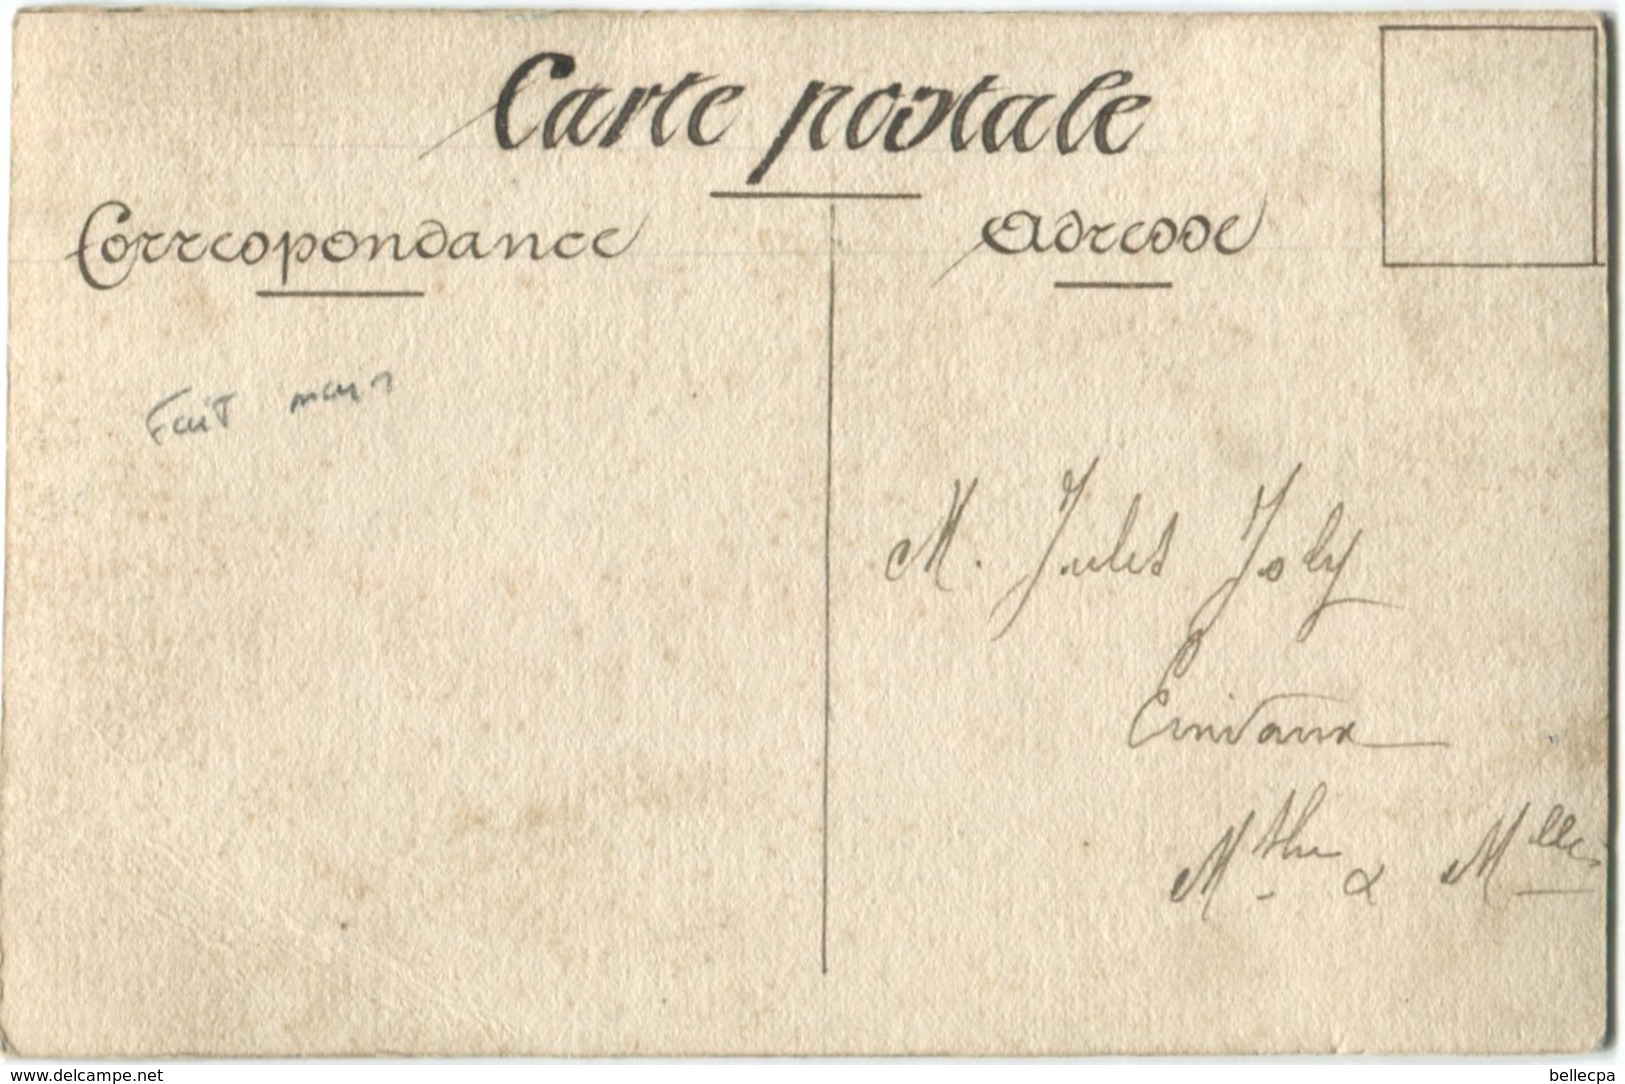 Carte postale
Correspondance
Adresse
Fait main
M. Jules Joly
M
& M
www.delcampe.net
bellecpa